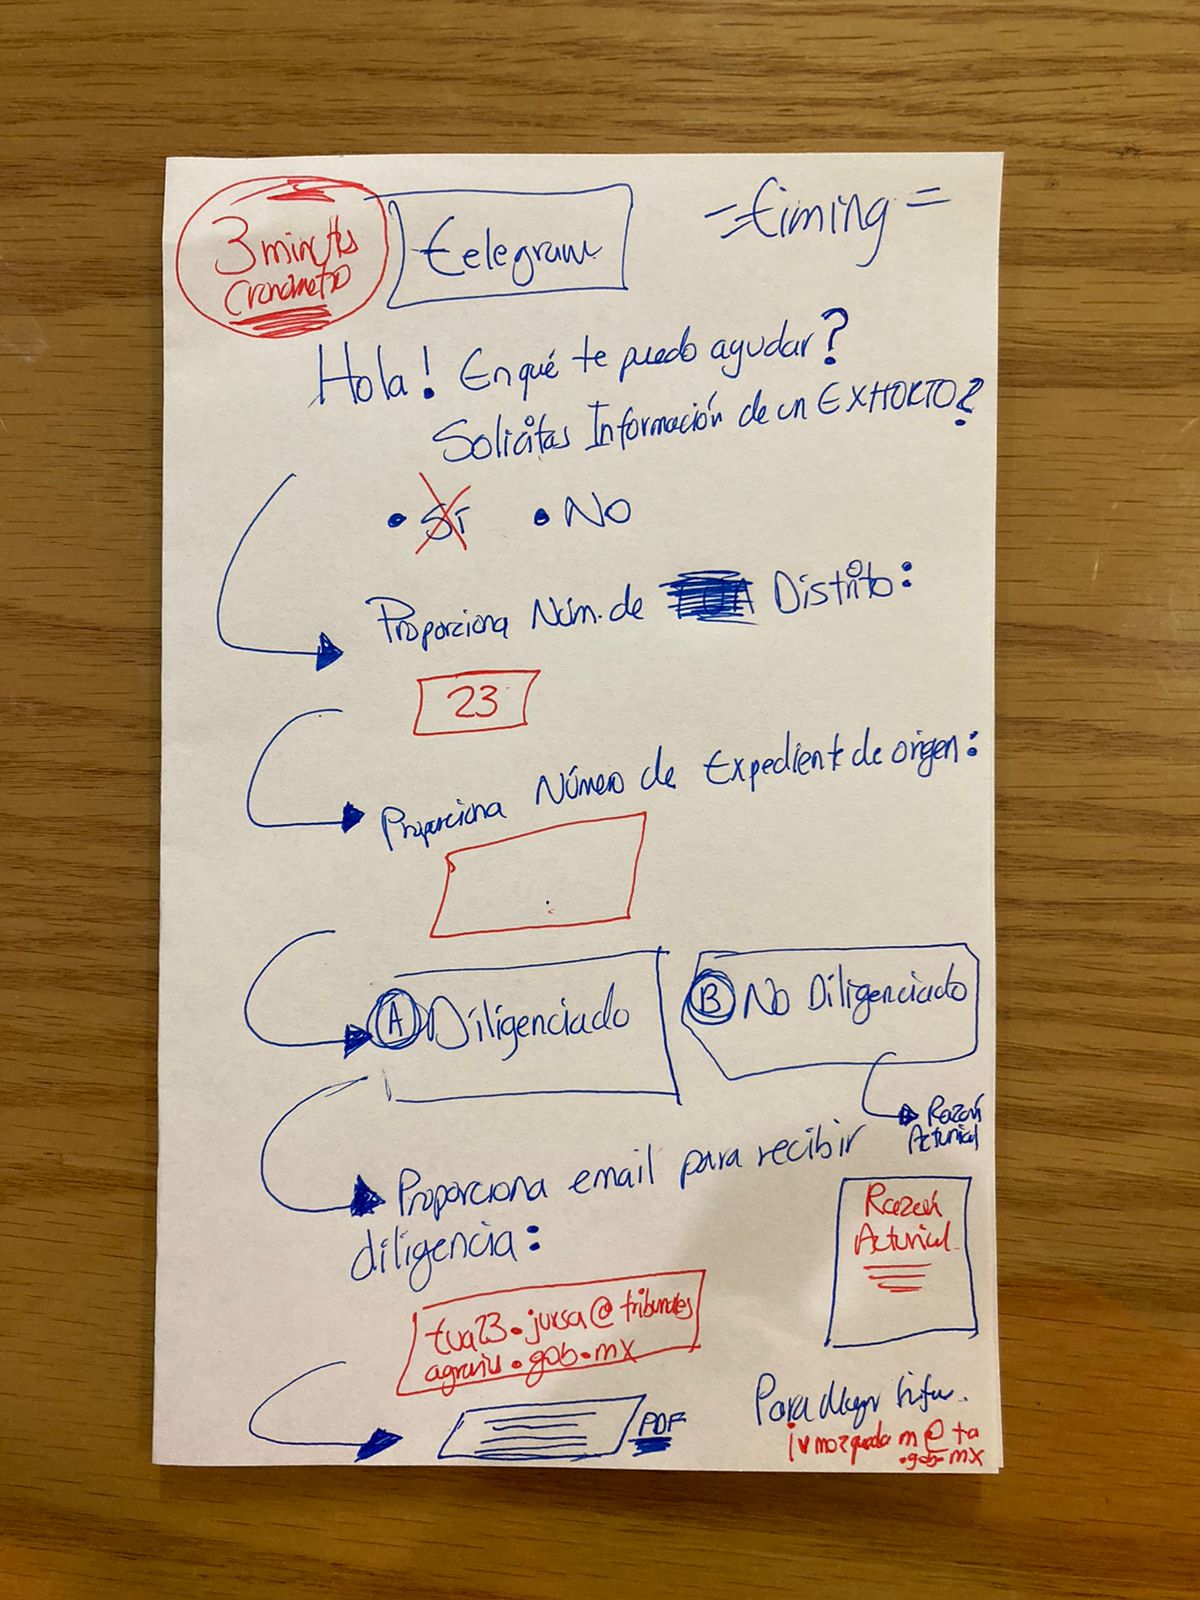 3 minutos
Cronometro
telegram
=timing=
Hola! En qué te puedo ayudar?
Solicitas Información de un EXHORTO?
• Sí • NO
Proporciona Núm. de Distrito:
23
Proporciona Número de Expediente de origen:
A Diligenciado
B No Diligenciado
Razón
Actuarial
Proporciona email para recibir
diligencia:
Razón
Actuarial
tua23.jursa@tribunales
agrarios.gob.mx
PDF
Para Mayor Info.
ivmozqueda m@ta
.gob.mx